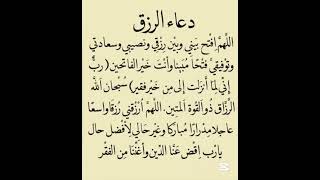 دعاء الرزق
اللَّهُمَّ افْتَح بَيني وبَيْن رِزْقي ونَصيبي وسعادتي
وتوْفيقي فَتْحًا مُبينا وأَنْتَ خَيْرُ الفاتحين ( ربِّ
إِنِّي لِمَا أَنزلتَ إلى مِن خَيْر فقير) سُبحان الله
الرزّاق ذو القوة المتين. اللَّهُمَّ ارْزُقني رِزقا واسعا
عاجلا مِدْرارًا مُباركا وغيِّر حالي لأَفْضل حال
يارَب إقضِ عَنَّا الدَّين وأغْننا مِن الفَقْر